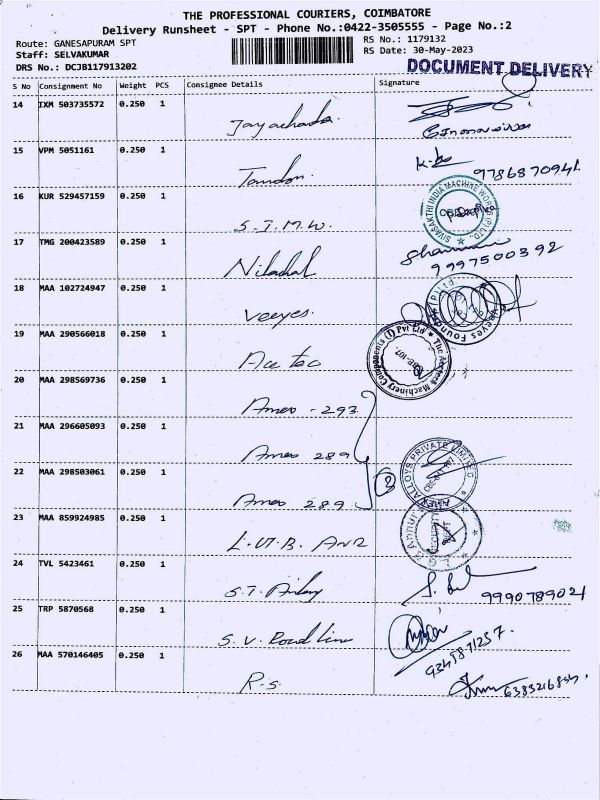 THE PROFESSIONAL COURIERS, COIMBATORE
Delivery Runsheet - SPT - Phone No.:0422-3505555 - Page No.:2
Route: GANESAPURAM SPT
RS No.: 1179132
Staff: SELVAKUMAR
RS Date: 30-May-2023
DRS No.: DCJB117913202
DOCUMENT DELIVERY
S No Consignment No Weight PCS Consignee Details Signature
14 IXM 503735572 0.250 1
15 VPM 5051161 0.250 1
Tandon.
9786870941
16 KUR 529457159 0.250 1
S.I.M.W.
SIVASAKTHI INDIA MACHINE WORKS (P) LTD.
17 TMG 200423589 0.250 1
9997500392
18 MAA 102724947 0.250 1
Veeyes.
Veeyes Foundry (P) Ltd
19 MAA 290566018 0.250 1
Ace tec
Machinery Components (I) Pvt Ltd
20 MAA 298569736 0.250 1
Ames - 293
21 MAA 296605093 0.250 1
Ames 289
22 MAA 298503061 0.250 1
Ames 289
3
ALLOYS PRIVATE LIMITED
23 MAA 859924985 0.250 1
24 TVL 5423461 0.250 1
9990789021
25 TRP 5870568 0.250 1
S. V. Road line
26 MAA 570146405 0.250 1
R.s.